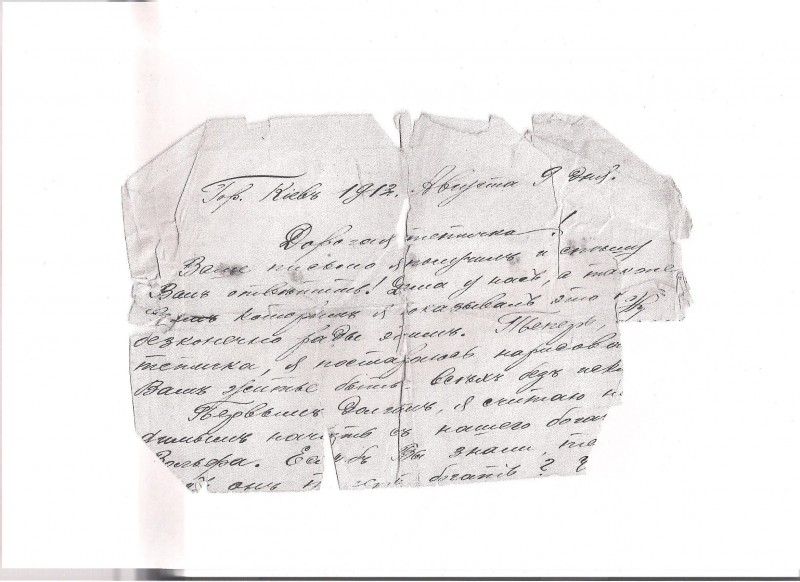 Гор. Кіевъ 1912. Августа 9 дня.
Дорогая тетичка!
Ваше письмо я получилъ и спѣшу
Вамъ отвѣтить! Дома у насъ, а также
которымъ я показывалъ это
безконечно рады этимъ. Теперь,
тетичка, я постараюсь нарисова
Вамъ житье бытье всѣхъ безъ иск
Первымъ долгомъ, я считаю н
димымъ начать съ нашего богат
Вольфа. Если бъ Вы знали, те
онъ богатъ?